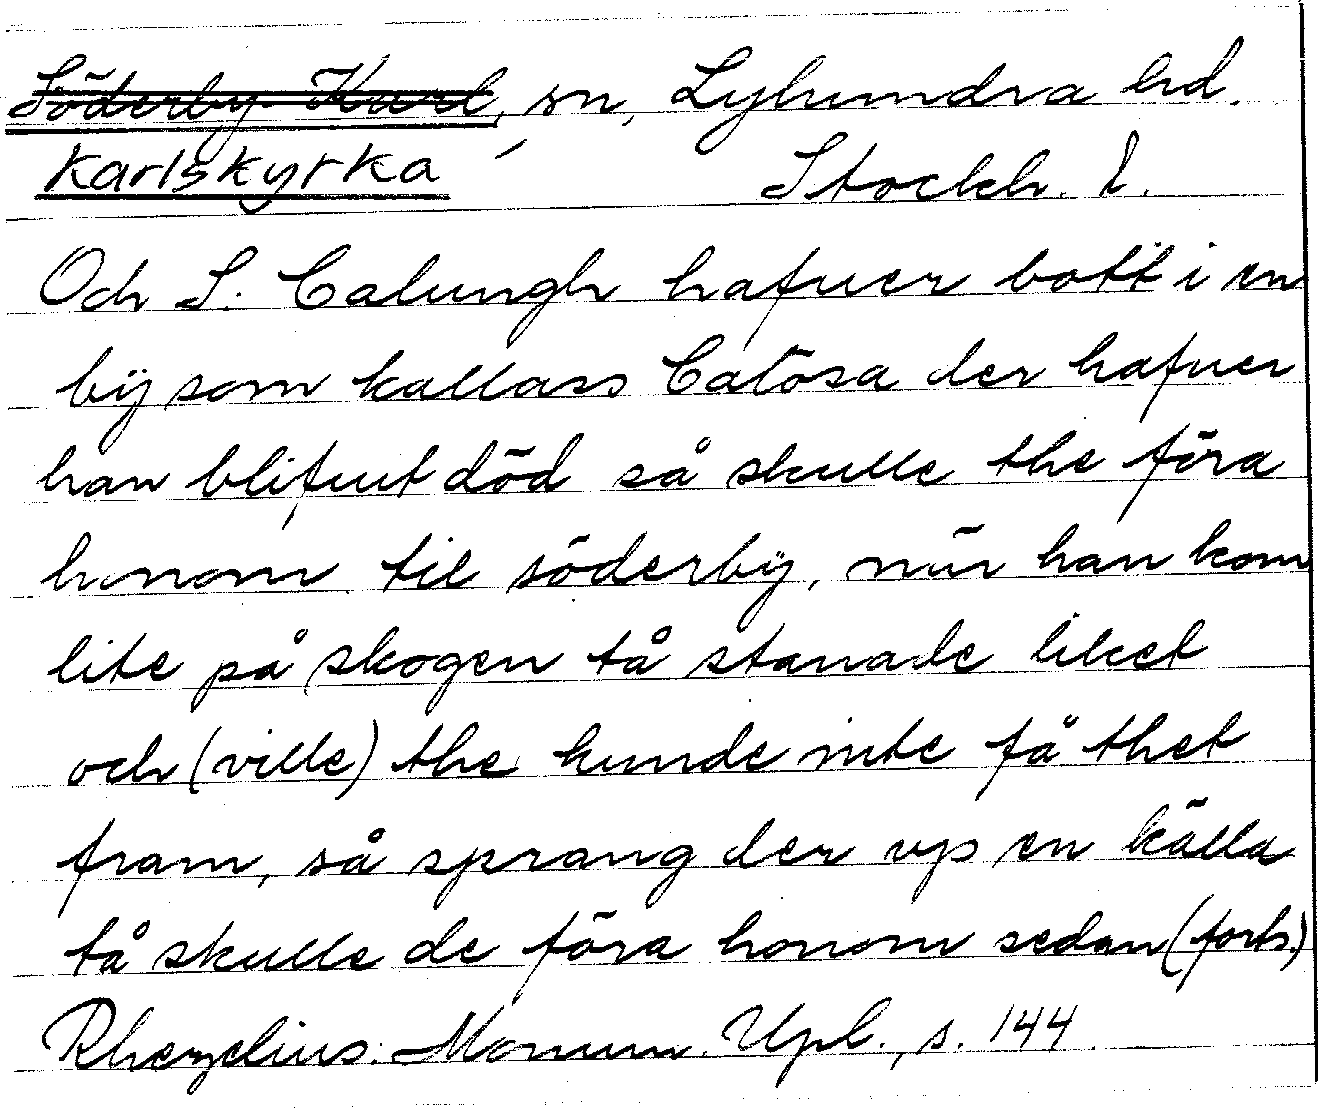 Söderby-Karl, sn, Lyhundra hd.
Karlskyrka Stockh. l.
Och S. Calungh hafuer bott i en
bÿ som kallass Catösa der hafuer
han blifuit död så skulle the föra
honom til söderbÿ, när han kom
lite på skogen tå stanade liket
och (ville) the kunde inte få thet
fram, så sprang der vp en källa
tå skulle de föra honom sedan (forts)
Rhezelius: Monum. Upl., s. 144.